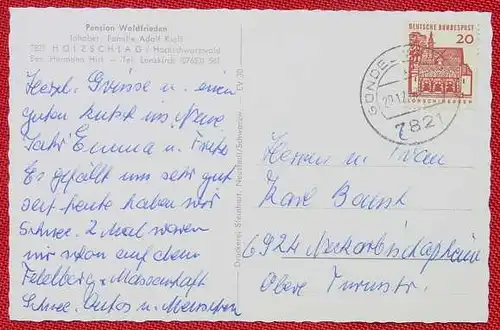 Pension Waldfrieden
Inhaber: Familie Adolf Kroll
7821 HOLZSCHLAG / Hochschwarzwald
Bes. Hermann Hirt - Tel. Lenzkirch (07653) 561
Herzl. Grüsse u. einen
guten Rutsch ins Neue
Jahr Emma u. Fritz
Es gefällt uns sehr gut
seit heute haben wir
Schnee. 2 Mal waren
wir schon auf dem
Feldberg. Massenhaft
Schnee. Autos u. Menschen
Druckerei Steinhart, Neustadt/Schwarzw. EV 20
DEUTSCHE BUNDESPOST
20
LORSCH/HESSEN
7821
Herrn u. Frau
Karl
6924 Neckarbischofsheim
Obere Turmstr.